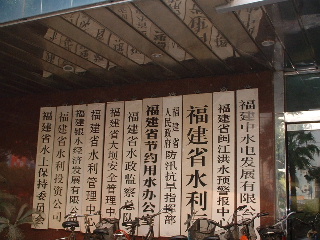 福建省水土保持委员会
福建省水利投资公司
福建银水经济发展有限公
福建省水利管理中
福建省大坝安全管理中
福建省水政监察总队
福建省节约用水办公室
福建省
人民政府防汛抗旱指挥部
福建省水利
福建省闽江洪水预警报中
福建中水电发展有限